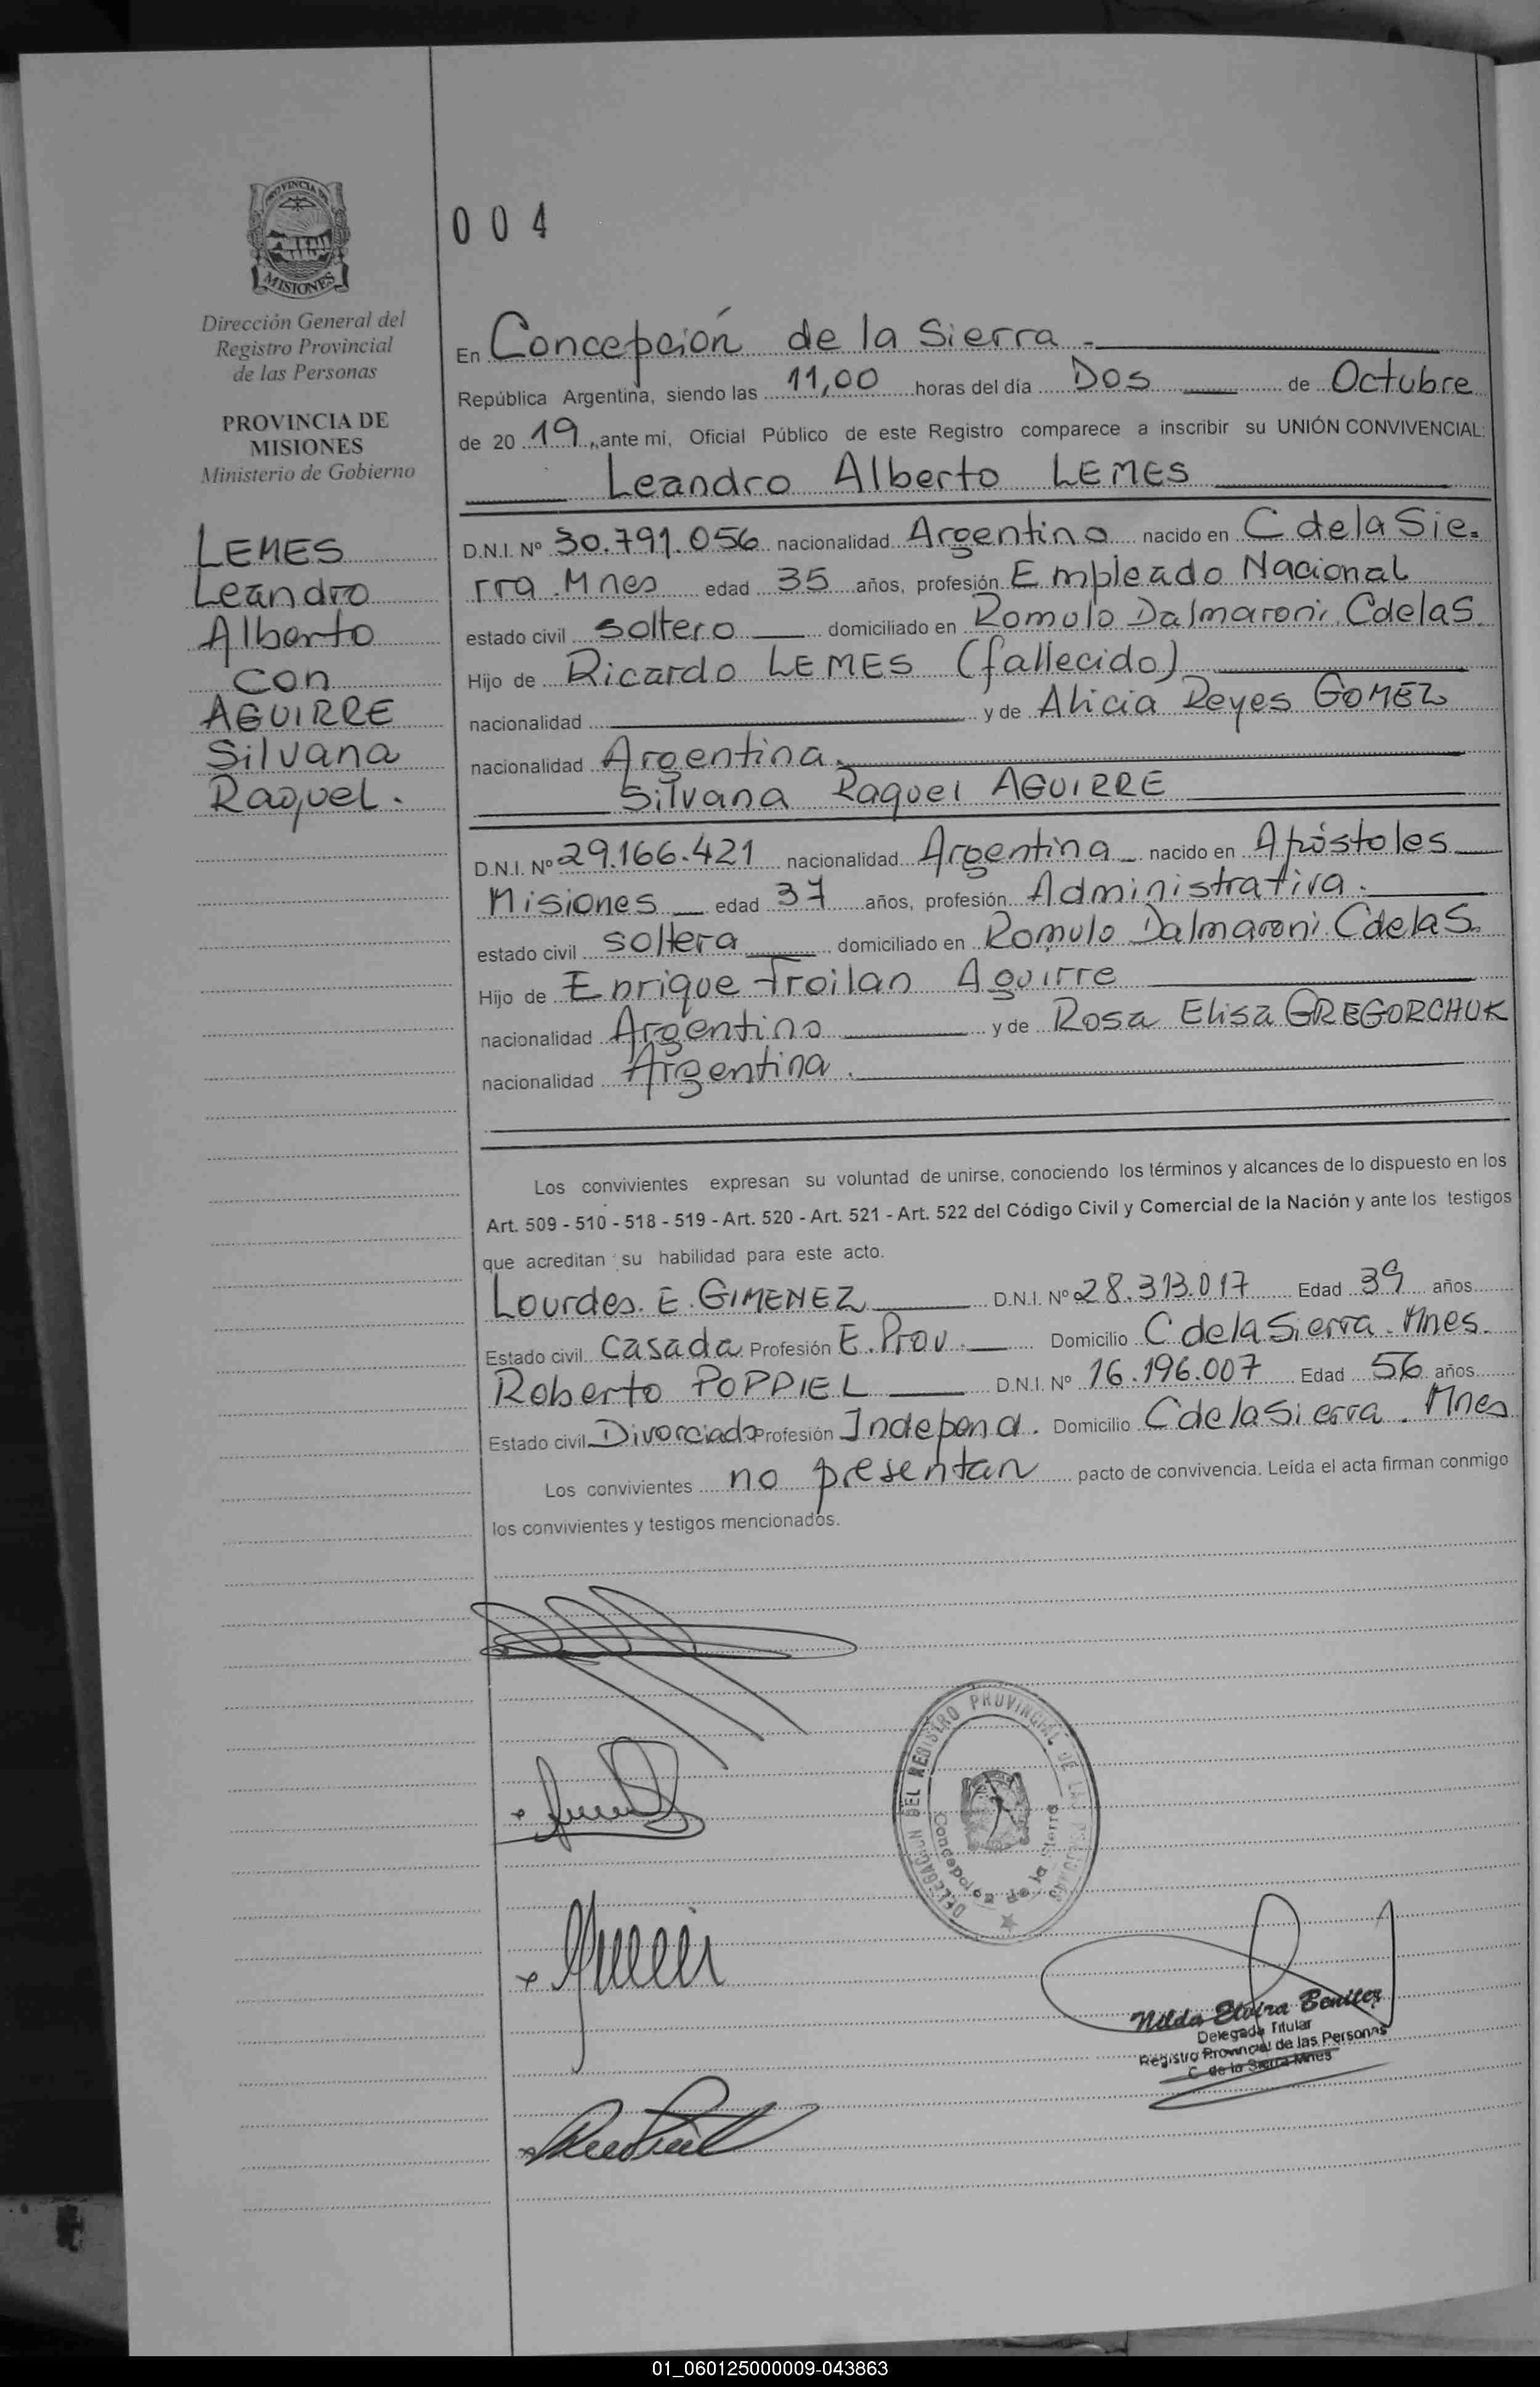 PROVINCIA DE
MISIONES
Dirección General del
Registro Provincial
de las Personas
PROVINCIA DE
MISIONES
Ministerio de Gobierno
LEMES
Leandro
Alberto
con
AGUIRRE
Silvana
Raquel.
004
En Concepción de la Sierra
República Argentina, siendo las 11,00 horas del día Dos de Octubre
de 20 19, ante mí, Oficial Público de este Registro comparece a inscribir su UNIÓN CONVIVENCIAL:
Leandro Alberto LEMES
D.N.I. Nº 30.791.056 nacionalidad Argentino nacido en C de la Sie=
rra Mnes edad 35 años, profesión Empleado Nacional
estado civil soltero domiciliado en Romulo Dalmaroni CdelaS.
Hijo de Ricardo LEMES (fallecido)
nacionalidad y de Alicia Reyes GOMEZ
nacionalidad Argentina.
Silvana Raquel AGUIRRE
D.N.I. Nº 29.166.421 nacionalidad Argentina nacido en Apóstoles
Misiones edad 37 años, profesión Administrativa.
estado civil soltera domiciliado en Romulo Dalmaroni CdelaS.
Hijo de Enrique Troilan Aguirre
nacionalidad Argentino y de Rosa Elisa GREGORCHUK
nacionalidad Argentina.
Los convivientes expresan su voluntad de unirse, conociendo los términos y alcances de lo dispuesto en los
Art. 509 - 510 - 518 - 519 - Art. 520 - Art. 521 - Art. 522 del Código Civil y Comercial de la Nación y ante los testigos
que acreditan su habilidad para este acto.
Lourdes E. GIMENEZ D.N.I. Nº 28.313.017 Edad 39 años
Estado civil Casada Profesión E. Prov. Domicilio C de la Sierra. Mnes.
Roberto POPPIEL D.N.I. Nº 16.196.007 Edad 56 años
Estado civil Divorciado Profesión Independ. Domicilio C de la Sierra. Mnes
Los convivientes no presentan pacto de convivencia. Leída el acta firman conmigo
los convivientes y testigos mencionados.
DELEGACION DEL REGISTRO PROVINCIAL DE LAS PERSONAS
Concepcion de la Sierra
Nilda Elvira Benitez
Delegada Titular
Registro Provincial de las Personas
C. de la Sierra Mnes
01_060125000009-043863